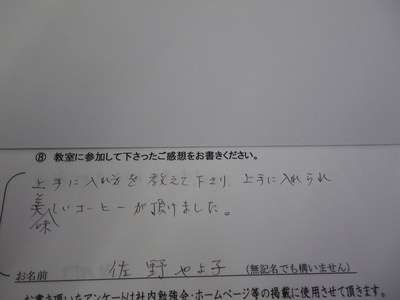 ⑧ 教室に参加して下さったご感想をお書きください。
上手に入れ方を教えて下さり、上手に入れられ
美味しいコーヒーが頂けました。
お名前 佐野やよ子 (無記名でも構いません)
お書き頂いたアンケートは社内勉強会・ホームページ等の掲載に使用させて頂きます。